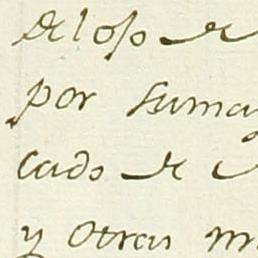 deloso de
por suma
cado de
y otras